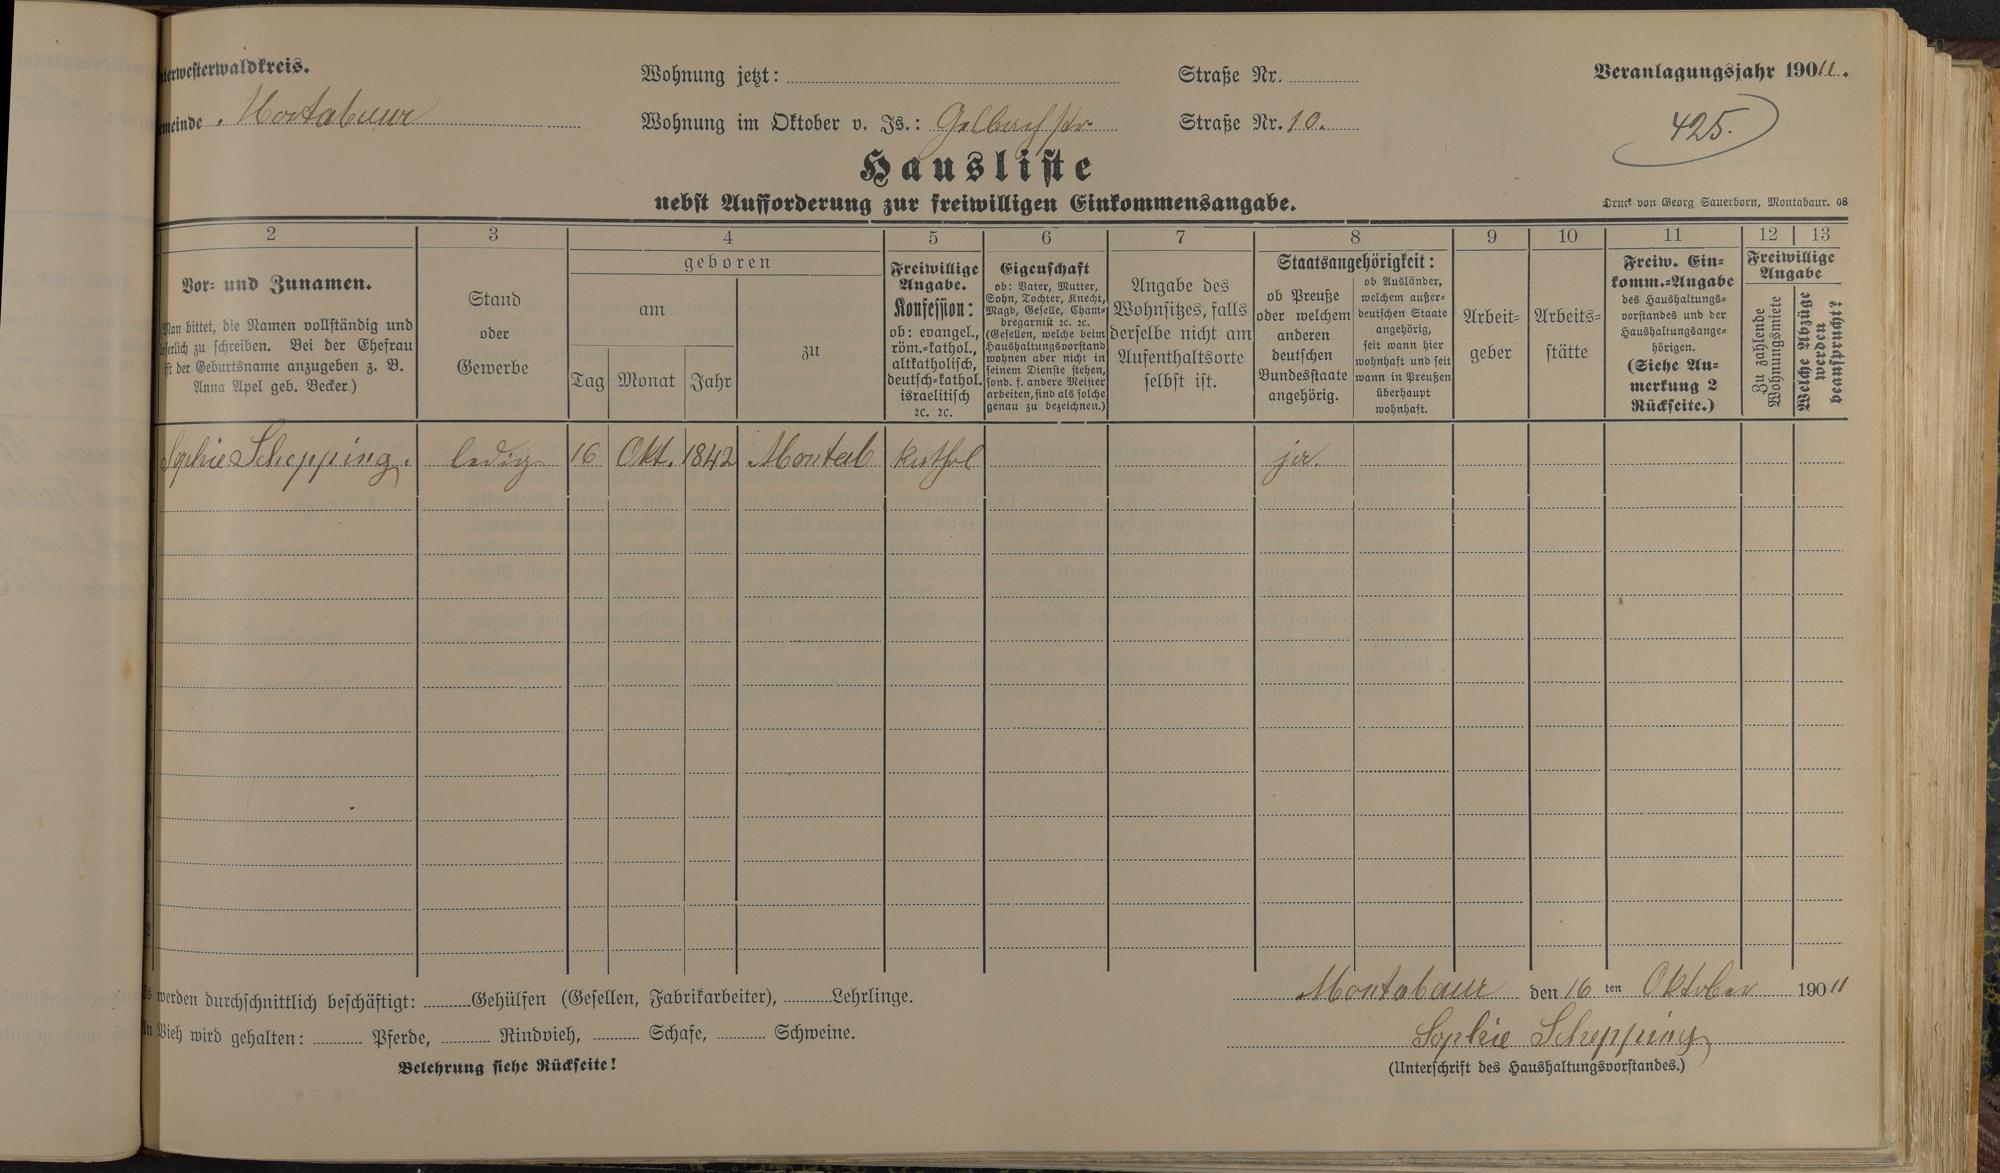 nterwesterwaldkreis.
meinde Montabaur
Wohnung jetzt:
Straße Nr.
Wohnung im Oktober v. Js.: Gelbachstr
Straße Nr. 10.
Veranlagungsjahr 19011.
425.
Hausliste
nebst Aufforderung zur freiwilligen Einkommensangabe.
Druck von Georg Sauerborn, Montabaur. 08
2 3 4 5 6 7 8 9 10 11 12 13
Vor- und Zunamen.
(Man bittet, die Namen vollständig und
leserlich zu schreiben. Bei der Ehefrau
ist der Geburtsname anzugeben z. B.
Anna Apel geb. Becker.)
Stand
oder
Gewerbe
geboren
am
Tag Monat Jahr
zu
Freiwillige
Angabe.
Konfession:
ob: evangel.,
röm.-kathol.,
altkatholisch,
deutsch-kathol.
israelitisch
ꝛc. ꝛc.
Eigenschaft
ob: Vater, Mutter,
Sohn, Tochter, Knecht,
Magd, Geselle, Cham-
bregarnist ꝛc. ꝛc.
(Gesellen, welche beim
Haushaltungsvorstand
wohnen aber nicht in
seinem Dienste stehen,
sond. f. andere Meister
arbeiten, sind als solche
genau zu bezeichnen.)
Angabe des
Wohnsitzes, falls
derselbe nicht am
Aufenthaltsorte
selbst ist.
Staatsangehörigkeit:
ob Preuße
oder welchem
anderen
deutschen
Bundesstaate
angehörig.
ob Ausländer,
welchem außer-
deutschen Staate
angehörig,
seit wann hier
wohnhaft und seit
wann in Preußen
überhaupt
wohnhaft.
Arbeit-
geber
Arbeits-
stätte
Freiw. Ein-
komm.-Angabe
des Haushaltungs-
vorstandes und der
Haushaltungsange-
hörigen.
(Siehe An-
merkung 2
Rückseite.)
Freiwillige
Angabe
Zu zahlende
Wohnungsmiete
Welche Abzüge
werden
beansprucht?
Sophie Schepping. ledig 16 Okt. 1842 Montab kathol ja.
werden durchschnittlich beschäftigt: Gehülfen (Gesellen, Fabrikarbeiter), Lehrlinge.
An Vieh wird gehalten: Pferde, Rindvieh, Schafe, Schweine.
Belehrung siehe Rückseite!
Montabaur den 16 ten Oktober 19011
Sophie Schepping
(Unterschrift des Haushaltungsvorstandes.)